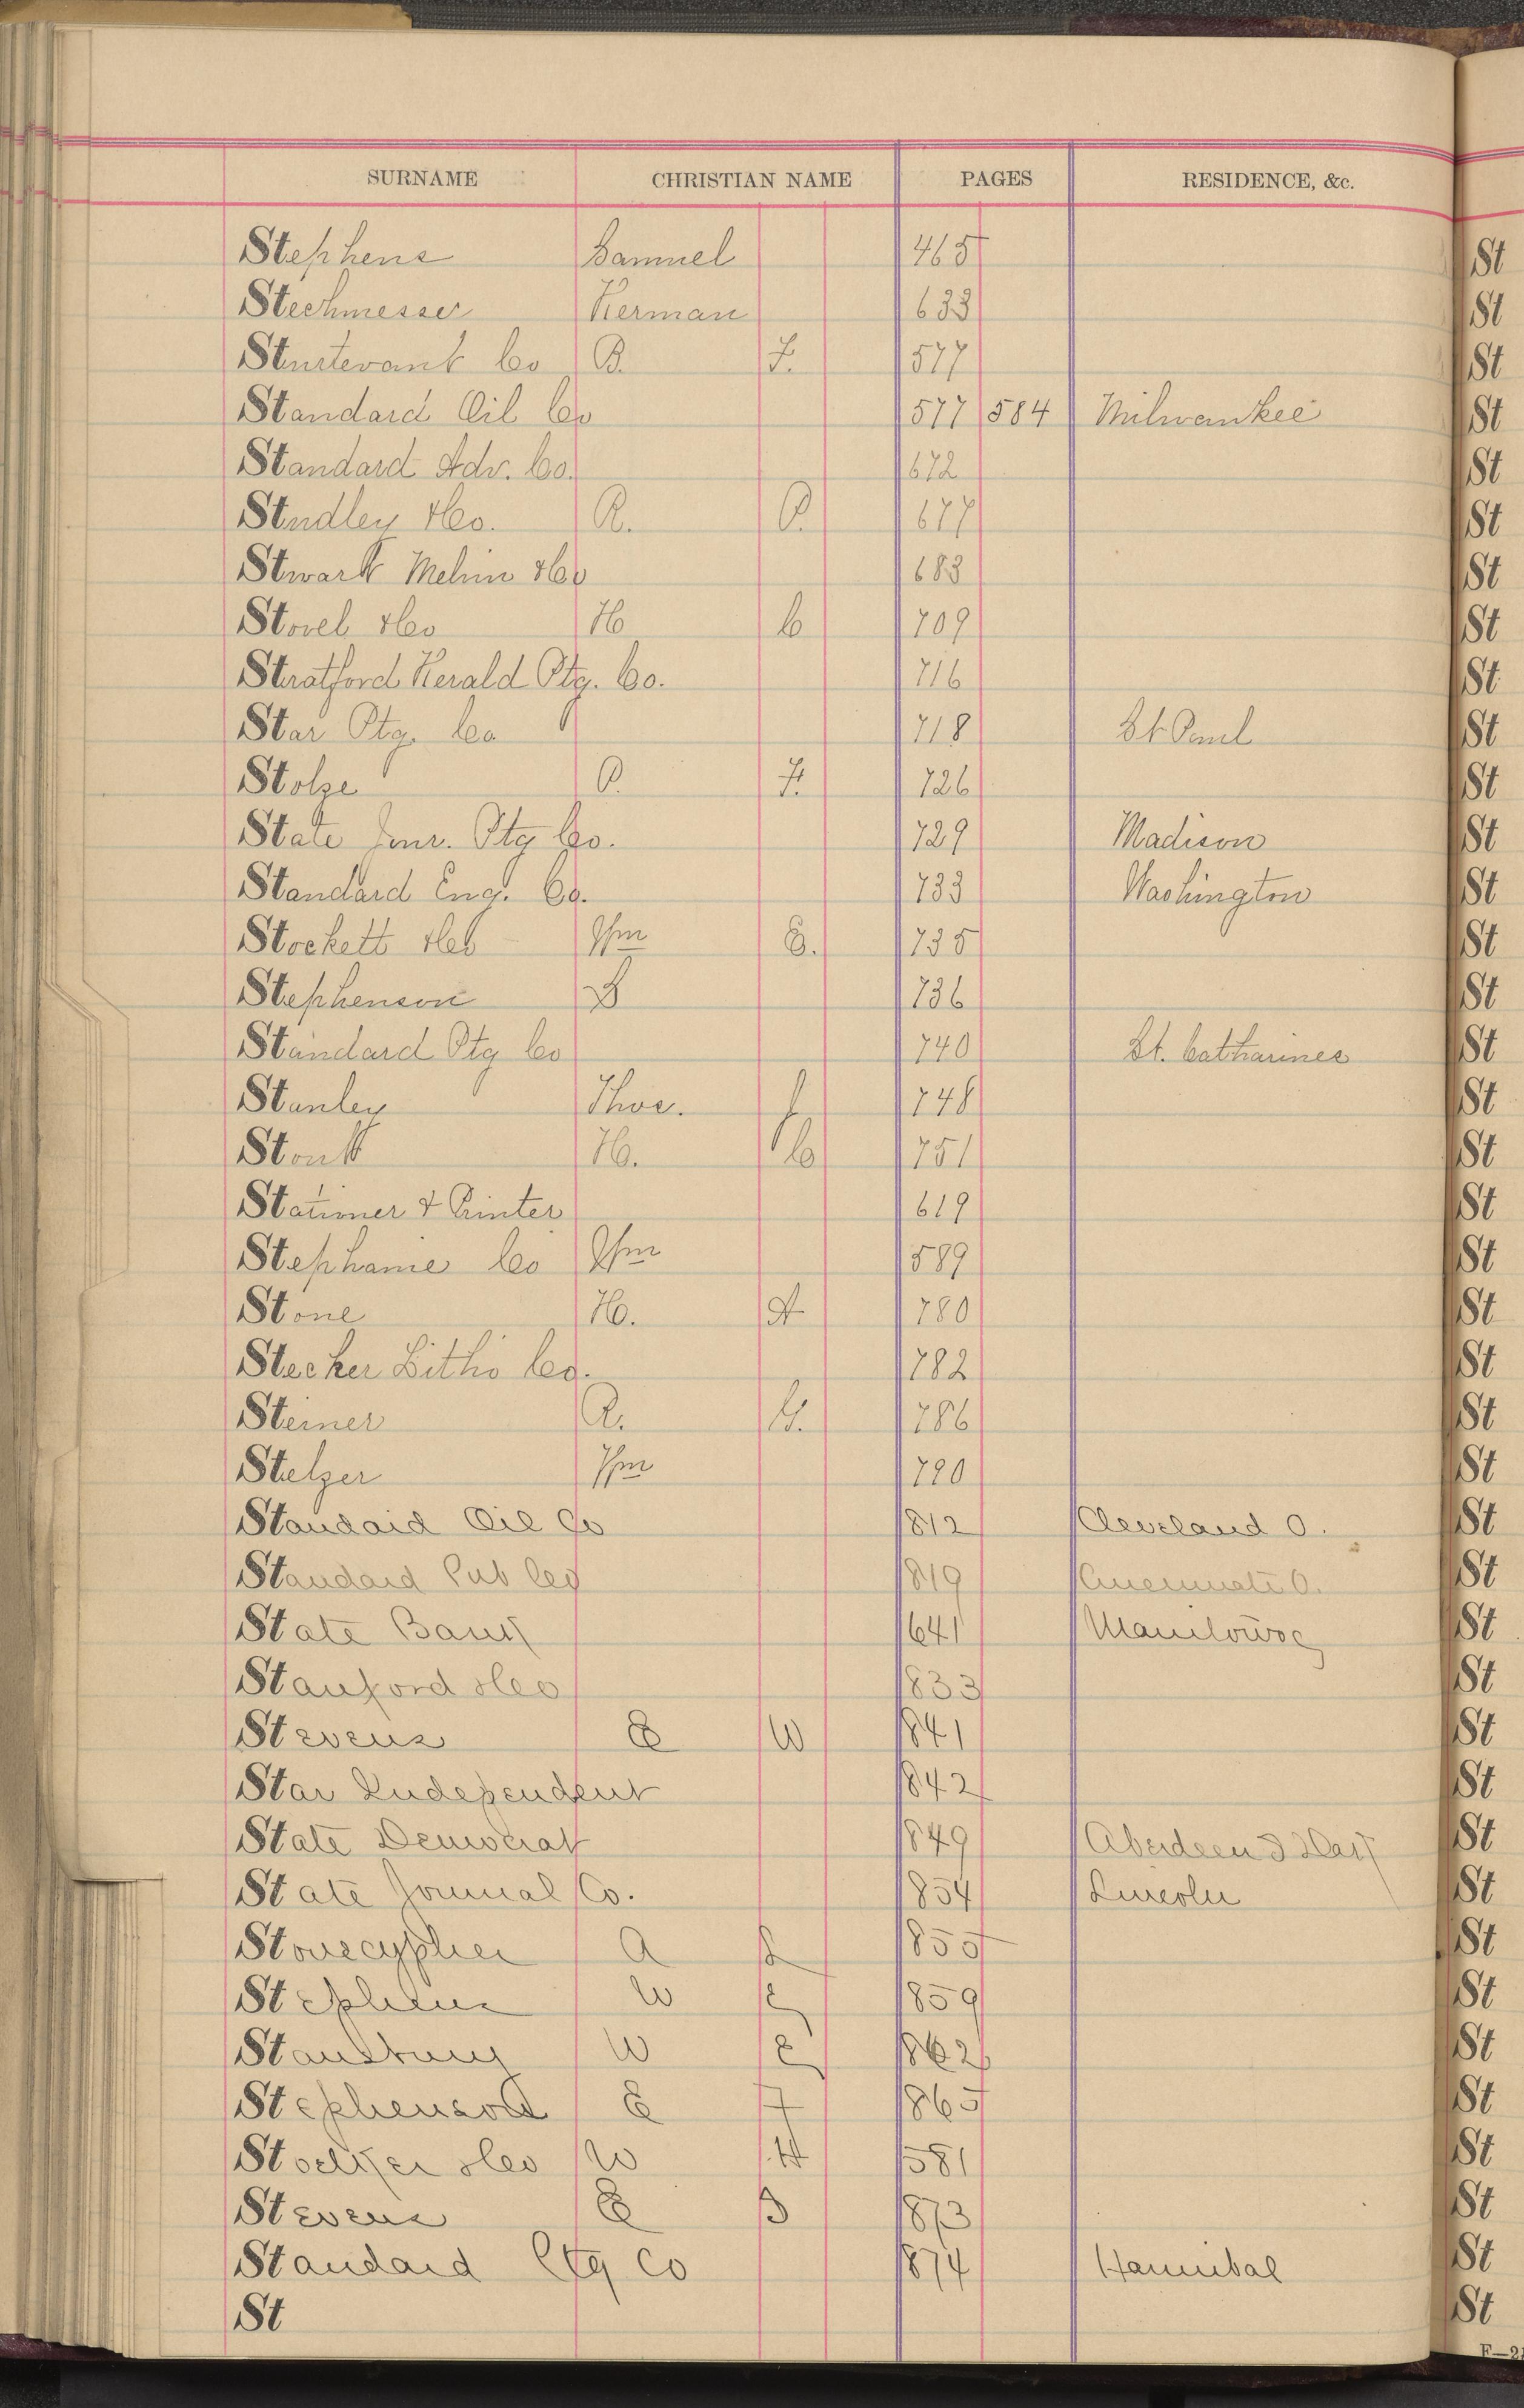 SURNAME CHRISTIAN NAME PAGES RESIDENCE, &c.
Stephens Samuel 465 St
Stechmesser Herman 633 St
Sturtevant Co B. F. 577 St
Standard Oil Co 577 584 Milwaukee St
Standard Adv. Co. 672 St
Studley &Co. R. P. 677 St
Stwart Melvin &Co 683 St
Stovel &Co H C 709 St
Stratford Herald Ptg. Co. 716 St
Star Ptg. Co 718 St Paul St
Stolze P. F. 726 St
State Jour. Ptg Co. 729 Madison St
Standard Eng. Co. 733 Washington St
Stockett &Co Wm E. 735 St
Stephenson B 736 St
Standard Ptg Co 740 St. Catharines St
Stanley Thos. J 748 St
Stout H. C 751 St
Stationer & Printer 619 St
Stephanie Co Wm 589 St
Stone H. A 780 St
Stecker Litho Co. 782 St
Steiner A. G. 786 St
Stelzer Wm 790 St
Standard Oil Co 812 Cleveland O. St
Standard Pub Co 819 Cincinnati O. St
State Bank 641 Manitowoc St
Stanford &Co 833 St
Stevens E W 841 St
Star Independent 842 St
State Democrat 849 Aberdeen St
State Journal Co. 854 Lincoln St
Stonecypher A 855 St
Stephens W E 859 St
W E 862 St
Stephenson E F 865 St
&Co W H 581 St
Stevens E B 873 St
Standard Ptg Co 874 Hannibal St
St St